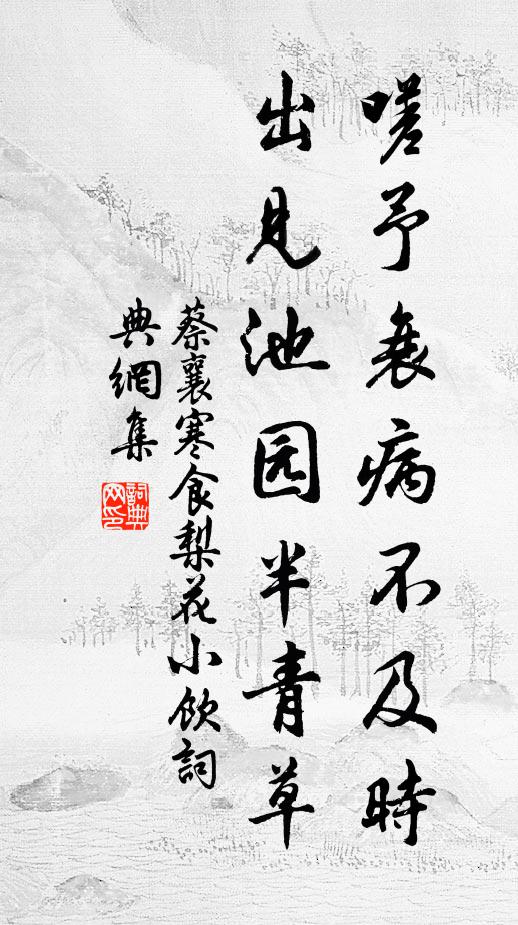 嗟予衰病不及時
出見池园半青草
蔡襄寒食梨花小飲詞
典網集
詞典
网印